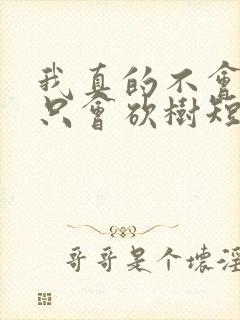 我真的不會
只會砍樹短
哥哥是个壞淫